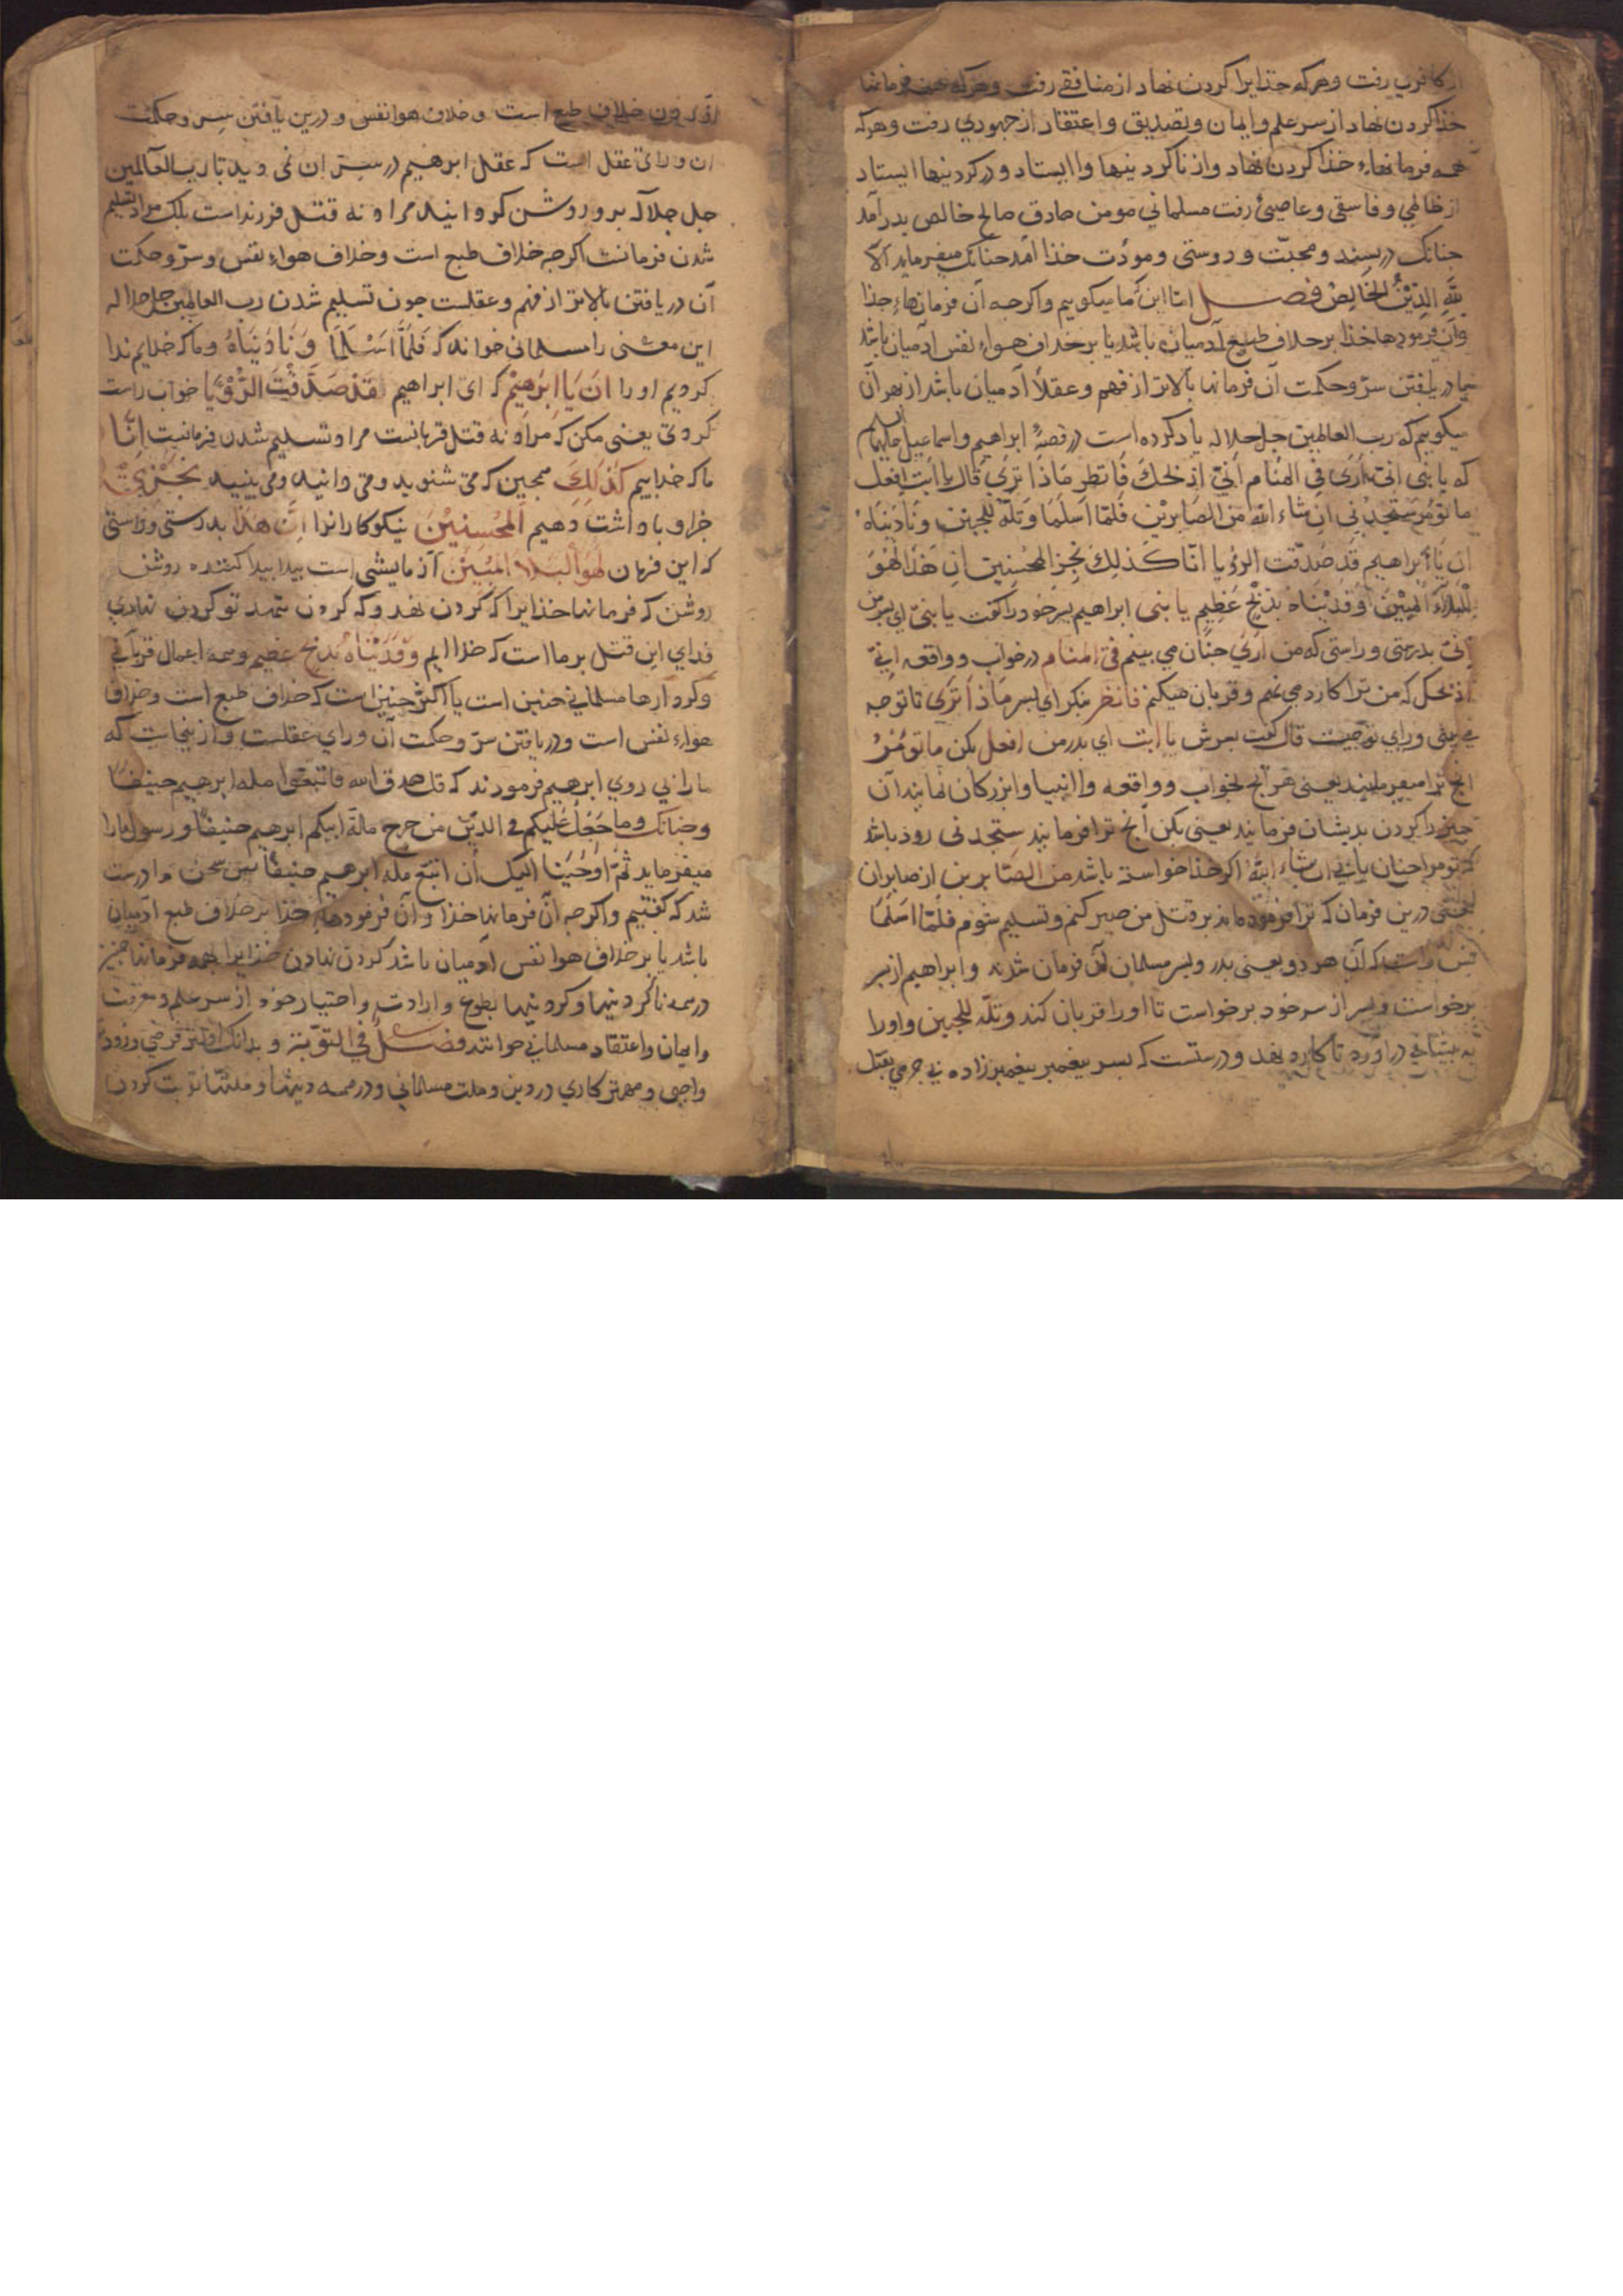 از کافری رفت وهرکه خذایرا کردن نهاد از منافقی رفت وهرکه همه فرمانها
خذا کردن نهاد از سر علم وایمان وتصدیق واعتقاد از جهودی رفت وهرکه
همه فرمانهاء خذا کردن نهاد واز ناکردینها واایستاد ودر کردینها ایستاد
از ظالمی وفاسقی وعاصیئ رفت مسلمانی مومن صادق صالح خالص بدر آمد
جنانک ومحبّت ودوستی ومودّت خذا آمد جنانک میفرماید الا
لِلّهِ الدِّیْنُ الخالِصْ فصل اما این که ما میکوییم واکرجه آن فرمانهاء خذا
وآن فرمودها خذا بر خلاف طبع آدمیان باشد یا بر خلاف هواء نفس آدمیان باشد
یا دریافتن سرّ وحکمت آن فرمانها بالاتر از فهم وعقل آدمیان باشد از بهر آن
میکوییم که رب العالمین جل جلاله یاد کرده است در قصهٔ ابراهیم واسماعیل علیهما السلم
که یا بنی انی اَرَی فی المنام اَنّی اذبحک فَانظر مَاذَا تَرَی قال یا ابت افعل
ما تؤمر ستجدنی ان شاء الله مِنَ الصابریْن فلمّا اسلما وَتلّهُ للجبین ونادیناه
ان یا ابراهیم قد صَدّقت الرؤیا انّا کذلک نجزِ المحسنین ان هذا لهو
البلاء المبین وَفَدَیْنَاهُ بذبْحٍ عَظِیمٍ یا بنی ابراهیم بسر خود را کفت یا بنی ای بسر من
اِنّی بدرستی وراستی که من اَرَی جنان می بینم فی المنام در خواب وواقعه اَنّی
اَذبحک که من ترا کارد می نهم وقربان میکنم فانظر بنکر ای بسر مَاذَا تَرَی تا تو جه
می بینی ورای تو جیست قال کفت بسرش یا ابت ای بدر من افعل بکن ما تؤمَرُ
آنج ترا میفرمایند یعنی هر آنج بخواب وواقعه واانبیا وابزرکان نمایند آن
جیز را کردن بدیشان فرمایند یعنی بکن آنج ترا فرمایند ستجدنی زود باشد
که تو مرا جنان یابی ان شاء الله اکر خذا خواسته باشد من الصّابرین از صابران
یعنی درین فرمان که ترا فرموده اند بر قتل من صبر کنم وتسلیم شوم فلمّا اسلما
بس راست که آن هر دو یعنی بدر وبسر مسلمان آن فرمان شدند وابراهیم از بسر
برخواست وبسر از سر خود برخواست تا اورا قربان کند وتلّه للجبین واورا
به بیشانی در آورد تا کارد نهد ودرستست که بسر بیغمبر بیغمبرزاده بی جرمی بقتل
آوردن خلاف طبع است وخلاف هوا نفس ودرین یافتن سر وحکمت
آن ورای عقل است که عقل ابرهیم در سر آن نمی دید تا رب العالمین
جل جلاله برو روشن کرد مراد نه قتل فرزند است بلک مراد تسلیم
شدن فرمانست اکرجه خلاف طبع است وخلاف هواء نفس وسرّ وحکمت
آن دریافتن بالاتر از فهم وعقلست جون تسلیم شدن رب العالمین جل جلاله
این معنی را مسلمانی خواند که فَلَمَّا اَسْلَمَا وَنَادَیْنَاهُ وما که خذاییم ندا
کردیم اورا اَنَ یَا اِبْرَهِیْمُ که ای ابراهیم قَدْ صَدَّقْتَ الرُّؤْیَا خواب راست
کردی یعنی مکن که مراد نه قتل قربانیست مراد تسلیم شدن فرمانیست اِنَّا
ما که خذاییم کَذَلِکَ همجنین که می شنوید ومی دانید ومی بینید نَجْزِی
جزا وباداشت دهیم المُحْسِنِیْنَ نیکوکارانرا اِنَّ هَذَا بدرستی وراستی
که این فرمان لَهُوَ الْبَلَاء المُبِیْنُ آزمایشی است بیدا بیدا کننده روشن
روشن که فرمانها خذایرا که کردن نهد وکه کردن ننهد تو کردن نهادی
فدای این قتل بر ما است که خذاایم وَفَدَیْنَاهُ بِذِبْحٍ عَظِیمٍ وهمه اعمال قربانی
وکردارها مسلمانی جنین است یا اکثر جنین است که خلاف طبع است وخلاف
هواء نفس است ودریافتن سرّ وحکمت آن ورای عقلست واز ینجاست که
مارا بی روی ابرهیم فرمودند که قل صدق الله فاتبعوا مله ابرهیم حنیفًا
وجنانک وما جَعَلَ عَلیکم فی الدّین من حرج ملّة ابیکم ابرهیم حنیفًا ورسول مارا
میفرماید ثمّ اَوْحَیْنا الیک اَن اتبع مله ابرهیم حنیفًا بس سخن ما درست
شد که کفتیم واکرجه آن فرمانها خذا وآن فرمودها خذا بر خلاف طبع آدمیان
باشد یا بر خلاف هوا نفس آدمیان باشد کردن نهادن خذایرا بهمه فرمانها
در همه ناکردینها وکردینها بطوع وارادت واختیار خود از سر علم ومعرفت
وایمان واعتقاد مسلمانی خوانند فصل فی التّوبَة وبدانک فرضی
واجبی ومهمتر کاری در دین وملت مسلمانی ودر همه دینها وملتها توبت کردن